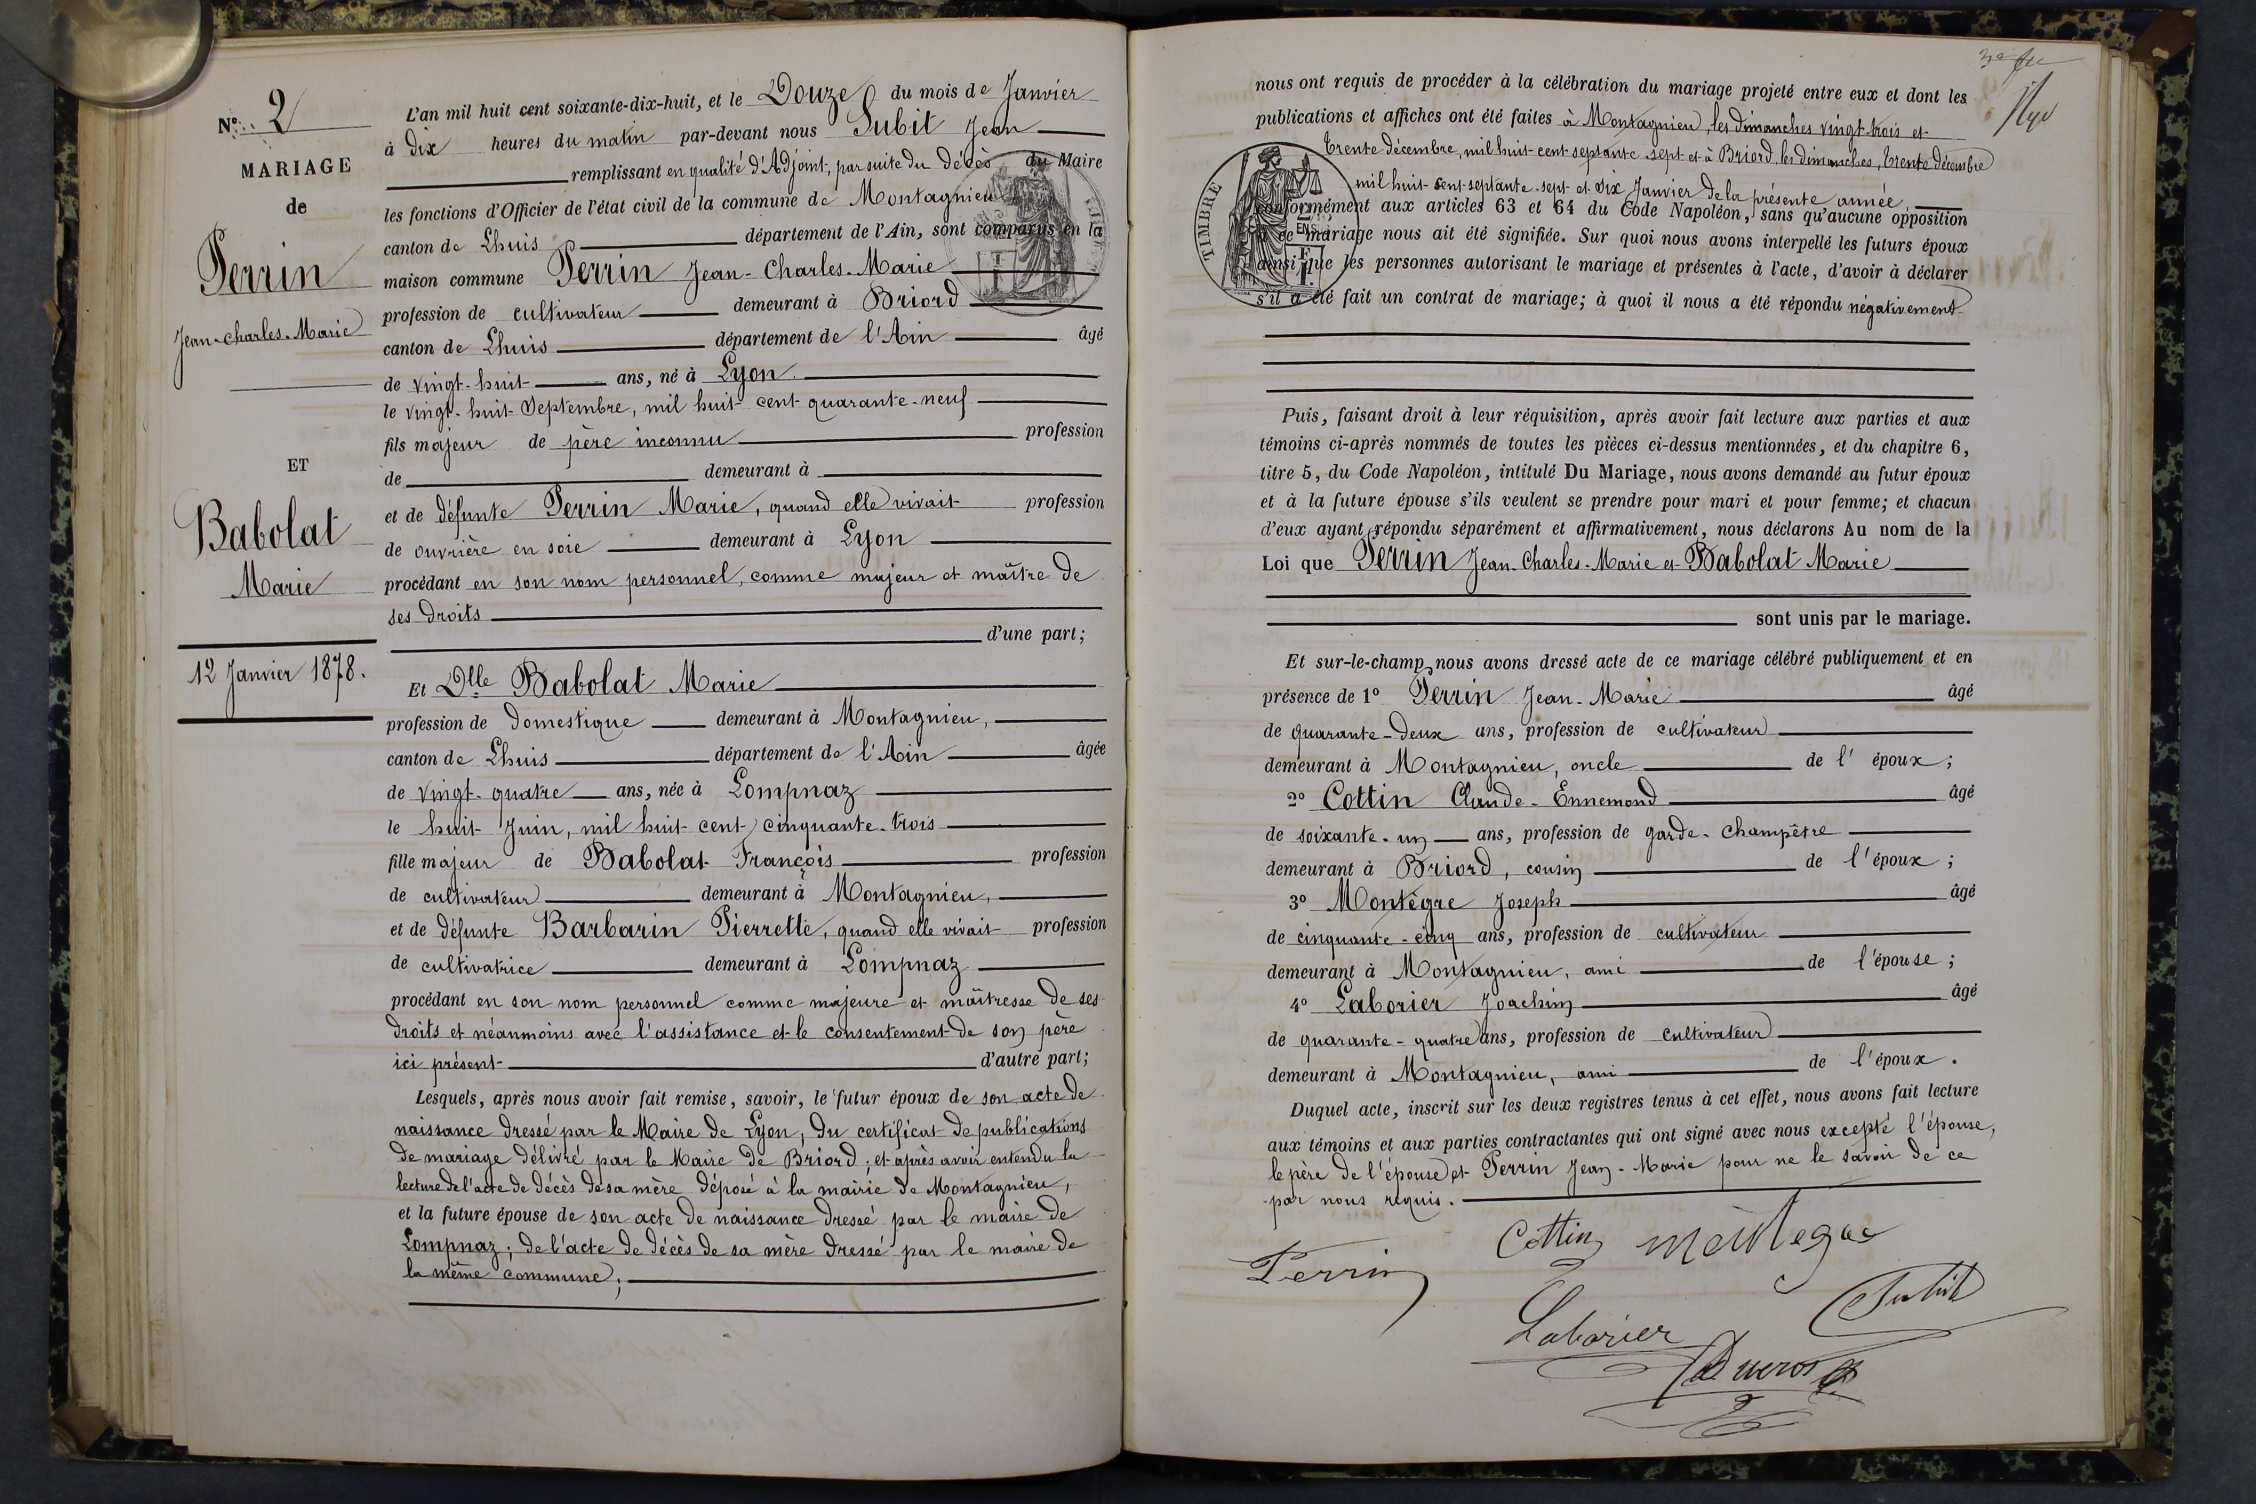 N° 2
MARIAGE
de
Perrin
Jean-Charles-Marie
ET
Babolat
Marie
12 Janvier 1878.
L'an mil huit cent soixante-dix-huit, et le Douze du mois de Janvier
à dix heures du matin par-devant nous Subit Jean
remplissant en qualité d'Adjoint, par suite du décès du Maire
les fonctions d'Officier de l'état civil de la commune de Montagnieu
canton de Lhuis département de l'Ain, sont comparus en la
maison commune Perrin Jean-Charles-Marie
profession de cultivateur demeurant à Briord
canton de Lhuis département de l'Ain âgé
de vingt-huit ans, né à Lyon
le vingt-huit Septembre, mil huit cent quarante-neuf
fils majeur de père inconnu profession
de demeurant à
et de défunte Perrin Marie, quand elle vivait profession
de ouvrière en soie demeurant à Lyon
procédant en son nom personnel, comme majeur et maître de
ses droits
d'une part;
Et Dlle Babolat Marie
profession de domestique demeurant à Montagnieu,
canton de Lhuis département de l'Ain âgée
de vingt-quatre ans, née à Lompnaz
le huit Juin, mil huit cent cinquante-trois
fille majeur de Babolat François profession
de cultivateur demeurant à Montagnieu,
et de défunte Barbarin Pierrette, quand elle vivait profession
de cultivatrice demeurant à Lompnaz
procédant en son nom personnel comme majeure et maîtresse de ses
droits et néanmoins avec l'assistance et le consentement de son père
ici présent d'autre part;
Lesquels, après nous avoir fait remise, savoir, le futur époux de son acte de
naissance dressé par le Maire de Lyon, du certificat de publications
de mariage délivré par le Maire de Briord; et après avoir entendu la
lecture de l'acte de décès de sa mère déposé à la mairie de Montagnieu,
et la future épouse de son acte de naissance dressé par le maire de
Lompnaz; de l'acte de décès de sa mère dressé par le maire de
la même commune;
nous ont requis de procéder à la célébration du mariage projeté entre eux et dont les
publications et affiches ont été faites à Montagnieu, les dimanches vingt-trois et
trente décembre, mil huit-cent-septante-sept et à Briord, les dimanches, trente décembre
mil huit-cent-septante-sept et six Janvier de la présente année,
TIMBRE
conformément aux articles 63 et 64 du Code Napoléon, sans qu'aucune opposition
à ce mariage nous ait été signifiée. Sur quoi nous avons interpellé les futurs époux
ainsi que les personnes autorisant le mariage et présentes à l'acte, d'avoir à déclarer
s'il a été fait un contrat de mariage; à quoi il nous a été répondu négativement
Puis, faisant droit à leur réquisition, après avoir fait lecture aux parties et aux
témoins ci-après nommés de toutes les pièces ci-dessus mentionnées, et du chapitre 6,
titre 5, du Code Napoléon, intitulé Du Mariage, nous avons demandé au futur époux
et à la future épouse s'ils veulent se prendre pour mari et pour femme; et chacun
d'eux ayant répondu séparément et affirmativement, nous déclarons Au nom de la
Loi que Perrin Jean-Charles-Marie et Babolat Marie
sont unis par le mariage.
Et sur-le-champ nous avons dressé acte de ce mariage célébré publiquement et en
présence de 1° Perrin Jean-Marie âgé
de quarante-deux ans, profession de cultivateur
demeurant à Montagnieu, oncle de l'époux;
2° Cottin Claude-Ennemond âgé
de soixante-un ans, profession de garde-champêtre
demeurant à Briord, cousin de l'époux;
3° Montègre Joseph âgé
de cinquante-cinq ans, profession de cultivateur
demeurant à Montagnieu, ami de l'épouse;
4° Laborier Joachim âgé
de quarante-quatre ans, profession de cultivateur
demeurant à Montagnieu, ami de l'époux.
Duquel acte, inscrit sur les deux registres tenus à cet effet, nous avons fait lecture
aux témoins et aux parties contractantes qui ont signé avec nous excepté l'épouse,
le père de l'épouse et Perrin Jean-Marie pour ne le savoir de ce
par nous requis.
Cottin
Perrin
Laborier
Subit